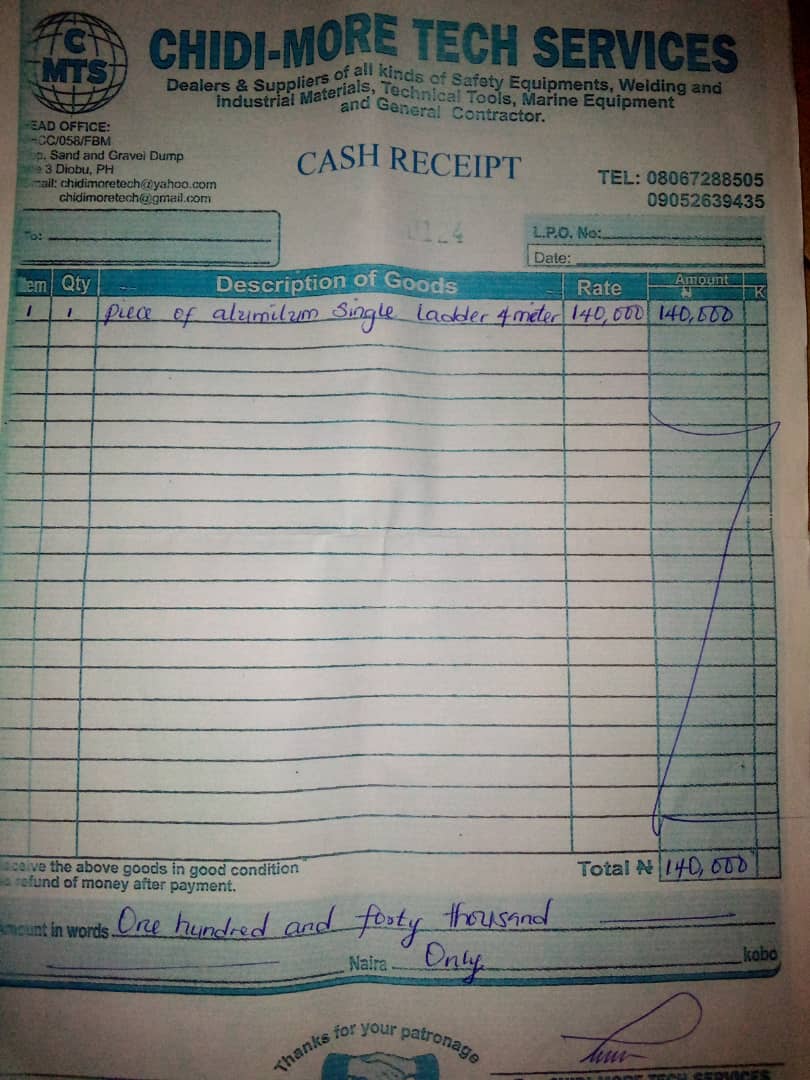 C
MTS
CHIDI-MORE TECH SERVICES
Dealers & Suppliers of all kinds of Safety Equipments, Welding and
industrial Materials, Technical Tools, Marine Equipment
and General Contractor.
EAD OFFICE:
CC/058/FBM
Sand and Gravel Dump
3 Diobu, PH
mail: chidimoretech@yahoo.com
chidimoretech@gmail.com
CASH RECEIPT
TEL: 08067288505
09052639435
To:
L.P.O. No:
Date:
em Qty Description of Goods Rate Amount
₦ K
1 1 piece of alumilum single ladder 4 meter 140,000 140,000
ceive the above goods in good condition
refund of money after payment.
Total ₦ 140,000
mount in words One hundred and footy thousand
Naira Only kobo
Thanks for your patronage
CHIDI-MORE TECH SERVICES